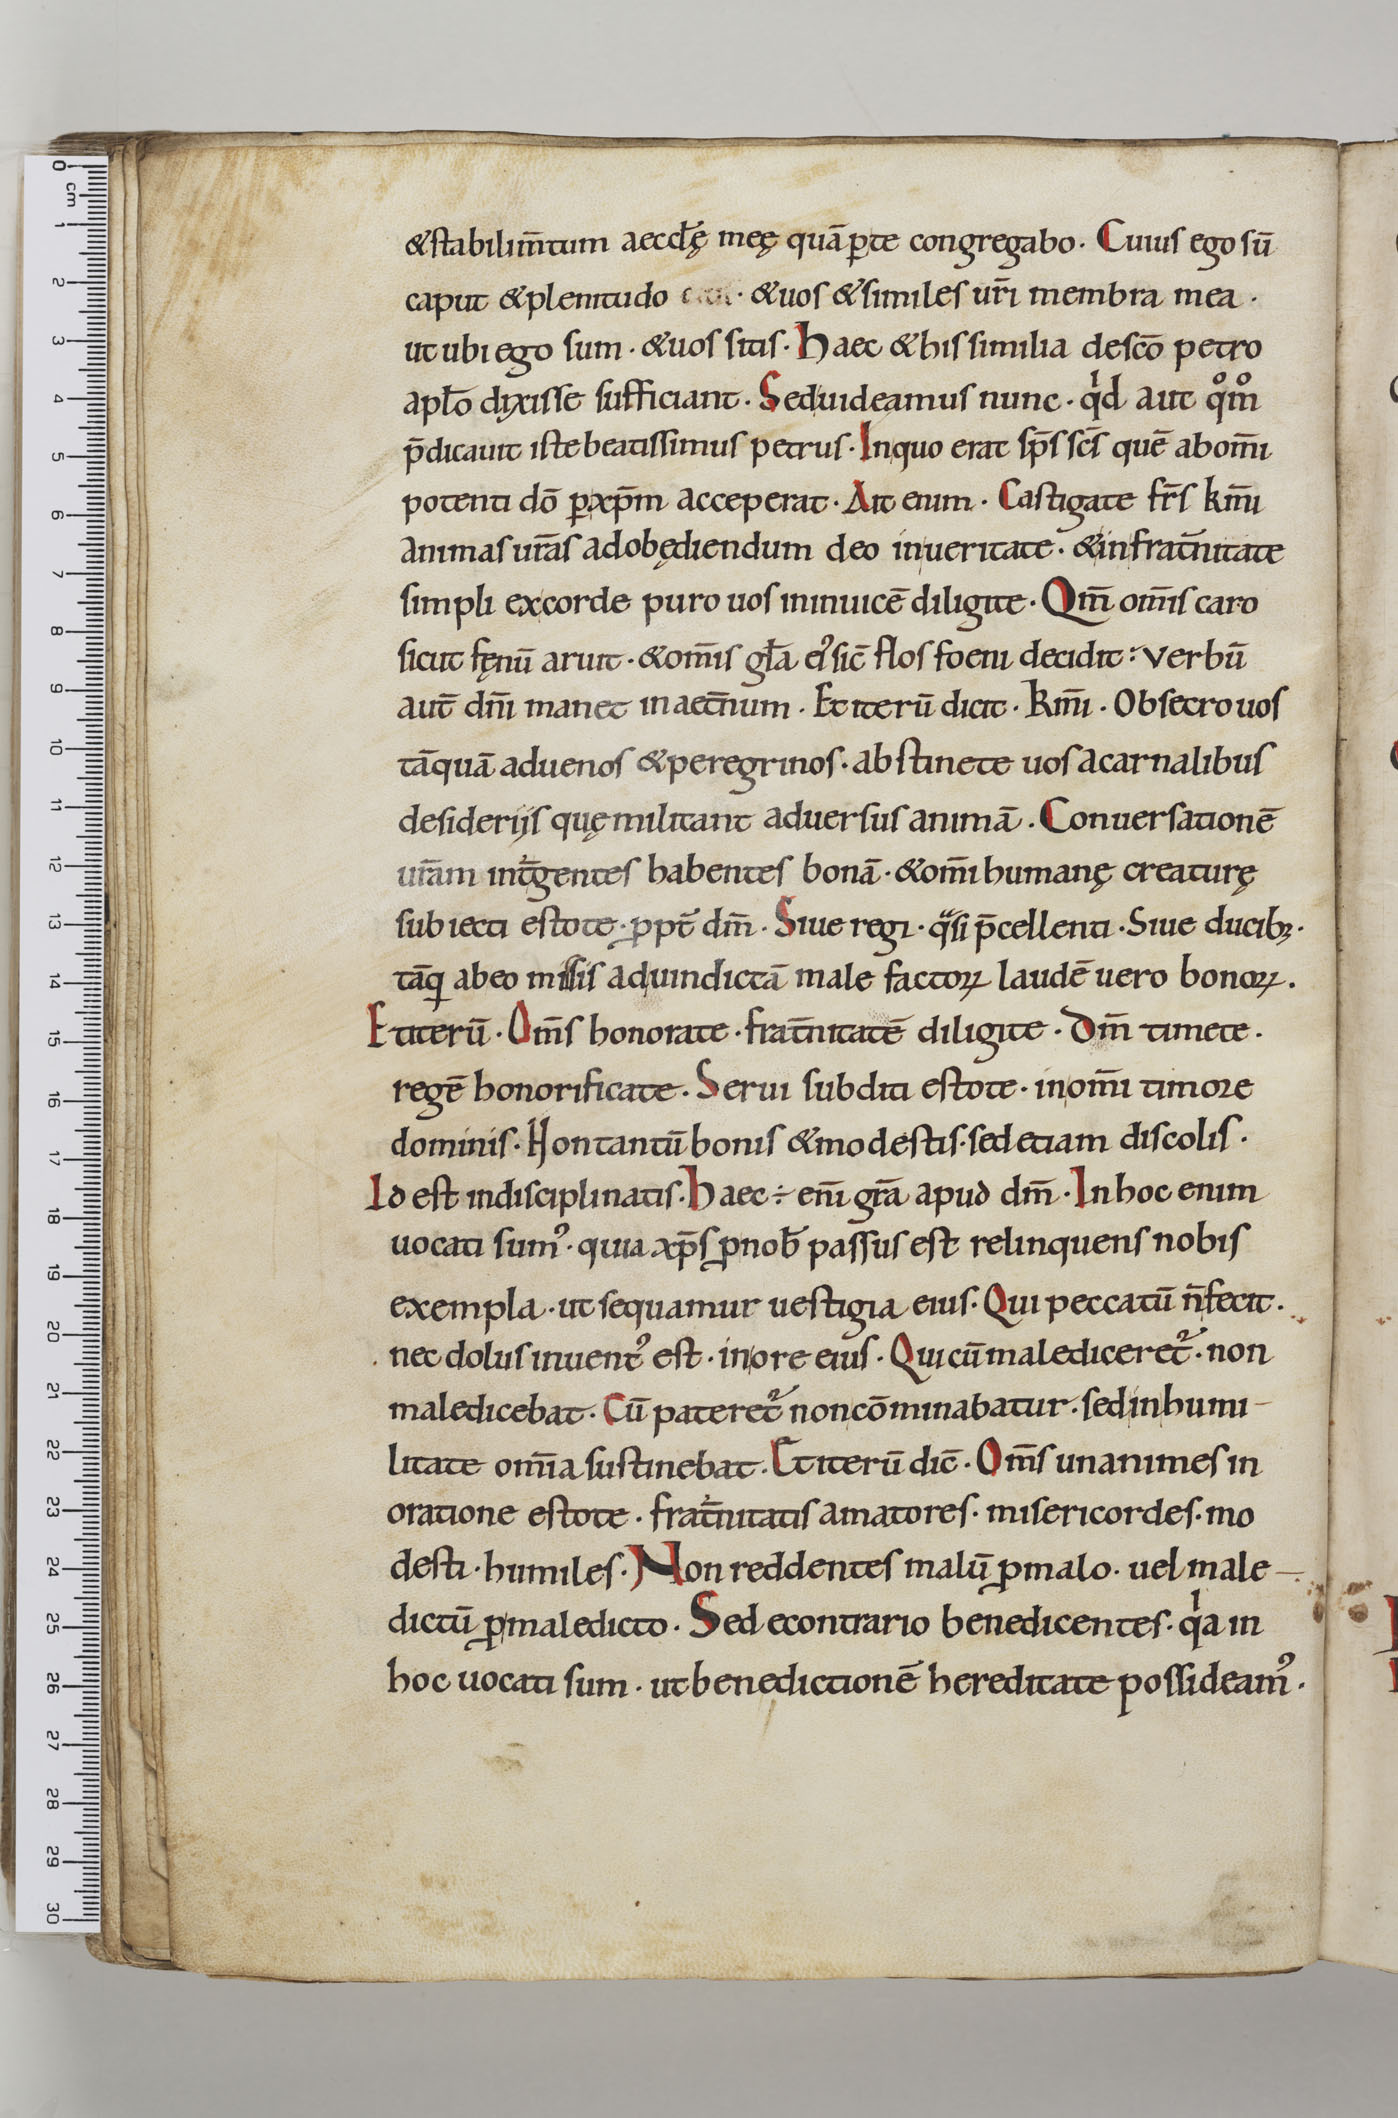 &stabilim̄tum aeccłę męę quā ꝑ te congregabo. Cuius ego sū
caput & plenitudo · & uos & similes ur̄i membra mea ·
ut ubi ego sum · & uos sitis. Haec & his similia de sc̄o petro
apło dixisse sufficiant. Sed uideamus nunc · qͥd aut qͦmͦ
p̄dicauit iste beatissimus petrus. In quo erat sp̄s sc̄s quē ab om̄i
potenti dō ꝑ xp̄m acceperat. Ait enim. Castigate fr̄s km̄i
animas ur̄as ad obędiendum deo in ueritate. & in frat̄nitate
simpli ex corde puro uos in inuicē diligite. Qm̄ om̄is caro
sicut fęnū aruit. & om̄is gła eiꝰ sic̄ flos foeni decidit: verbū
aut̄ dn̄i manet in aet̄num. Et iterū dicit. Km̄i. Obsecro uos
tāquā aduenos & peregrinos. abstinete uos a carnalibus
desiderijs quę militant aduersus animā. Conuersationē
ur̄am int̄ gentes habentes bonā. & om̄i humanę creaturę
subiecti estote ꝓpt̄ dm̄. Siue regi. qͣsi p̄cellenti. Siue ducibꝫ.
tāq̄ ab eo missis ad uindictā male factoꝝ laudē uero bonoꝝ.
Et iterū. Om̄s honorate. frat̄nitatē diligite. Dm̄ timete.
regē honorificate. Serui subditi estote. in om̄i timore
dominis. Non tantū bonis & modestis. sed etiam discolis.
Id est indisciplinatis. Haec ÷ eni̅ gr̄a apud dm̄. In hoc enim
uocati sumꝰ. quia xp̄s ꝓ nob̄ passus est relinquens nobis
exempla. ut sequamur uestigia eius. Qui peccatū n̄ fecit.
nec dolus inuentꝰ est. in ore eius. Qui cū malediceret᷑. non
maledicebat. Cū pateret᷑ non cōminabatur. sed in humi-
litate om̄ia sustinebat. Et iterū dic̄. Om̄s unanimes in
oratione estote. frat̄nitatis amatores. misericordes. mo
desti. humiles. Non reddentes malū ꝓ malo. uel male-
dictū ꝓ maledicto. Sed econtrario benedicentes. qͥa in
hoc uocati sum. ut benedictionē hereditate possideamꝰ.